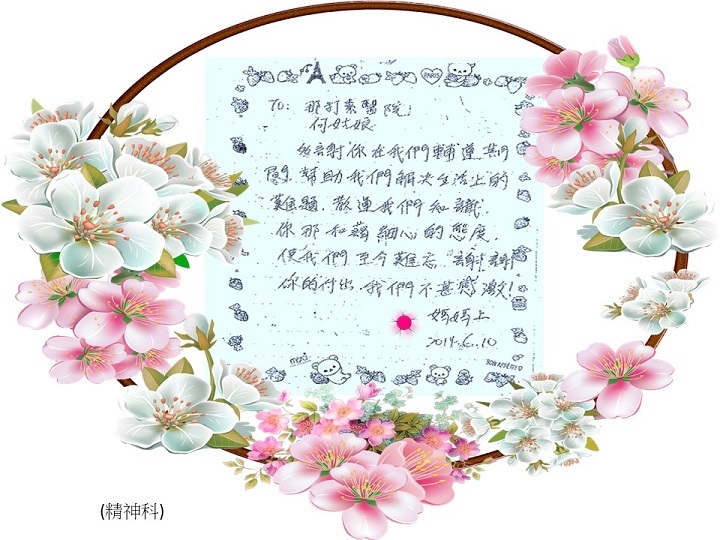 PARIS
To: 那打素醫院!
何姑娘
感謝你在我們輔導期
間,幫助我們解決生活上的
難題,教導我們知識,
你那和藹細心的態度,
使我們至今難忘,謝謝
你的付出,我們不甚感激!
媽媽上
2014.6.10
merci
(精神科)